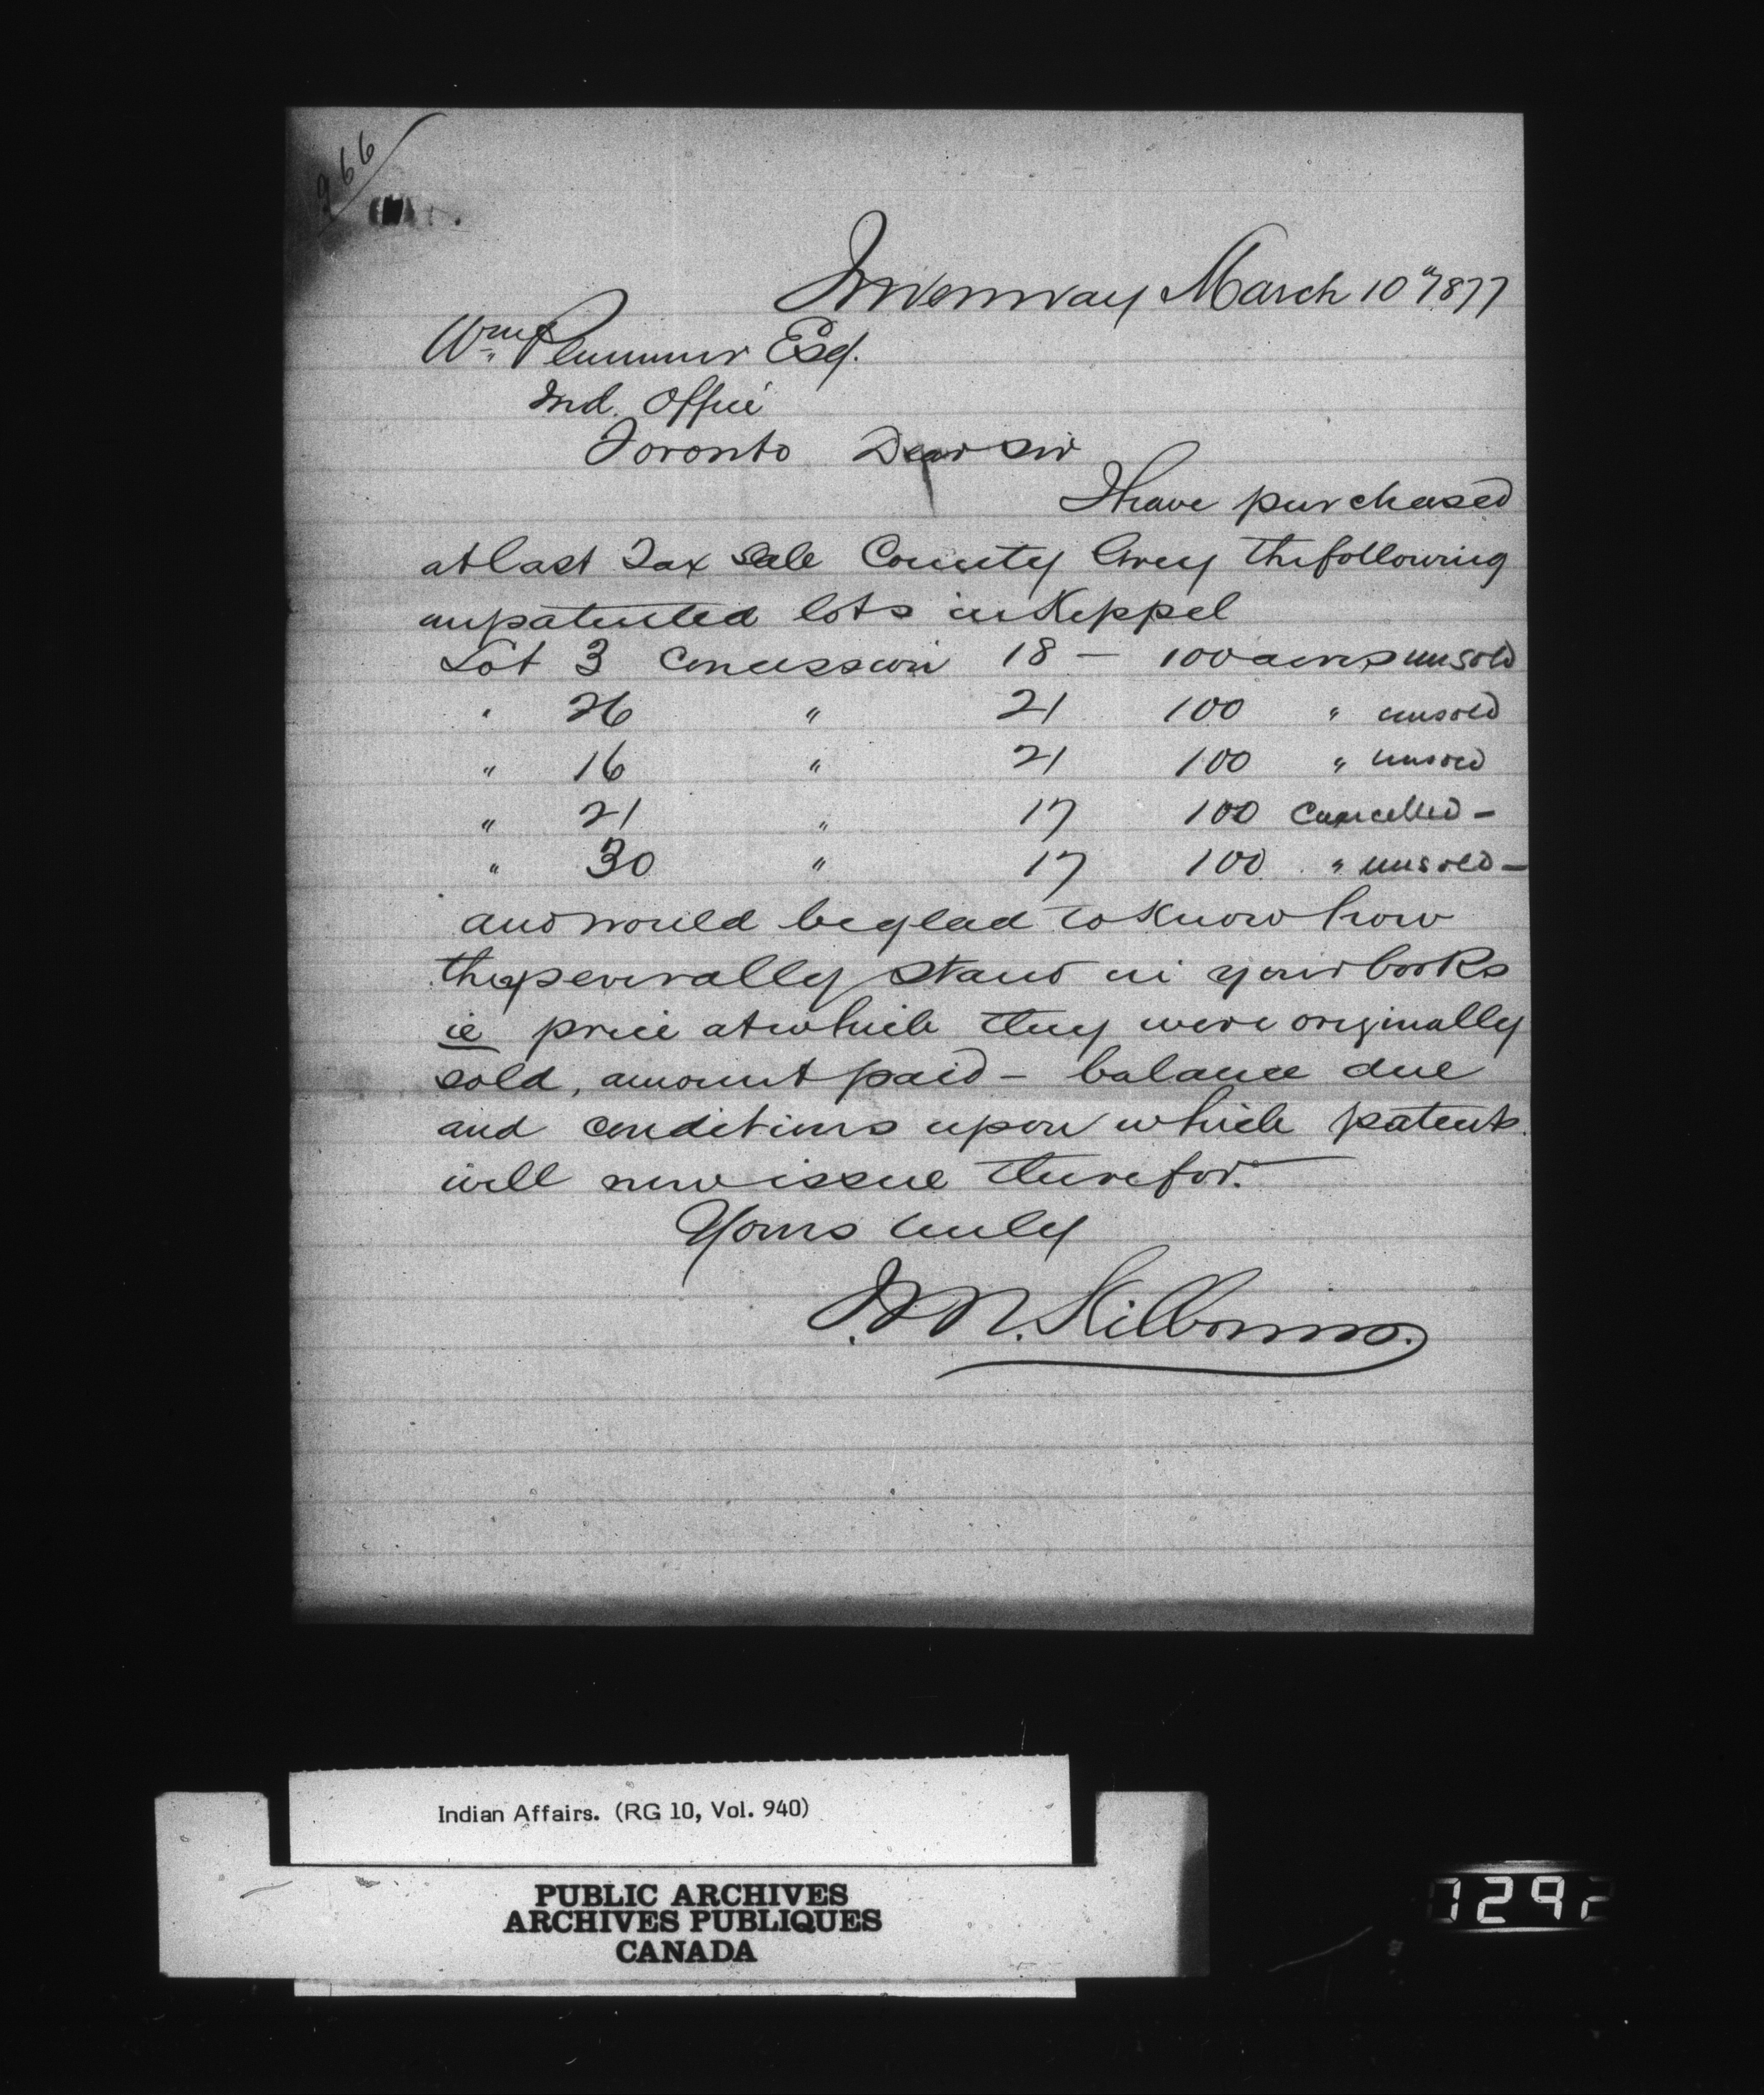 966
Invermay March 10th 1877
Wm Plummer Esq.
Ind. Office
Toronto Dear Sir
I have purchased
at last Tax Sale County Grey the following
unpatented lots in Keppel
Lot 3 Concession 18 — 100 acres unsold
" 26 " 21 100 " unsold
" 16 " 21 100 " unsold
" 21 " 17 100 Cancelled —
" 30 " 17 100 " unsold —
and would be glad to know how
they severally stand in your books
ie price at which they were originally
sold, amount paid — balance due
and conditions upon which patents
will now issue therefor.
Yours truly
J. W. N. Kilbourn.
Indian Affairs. (RG 10, Vol. 940)
PUBLIC ARCHIVES
ARCHIVES PUBLIQUES
CANADA
7292